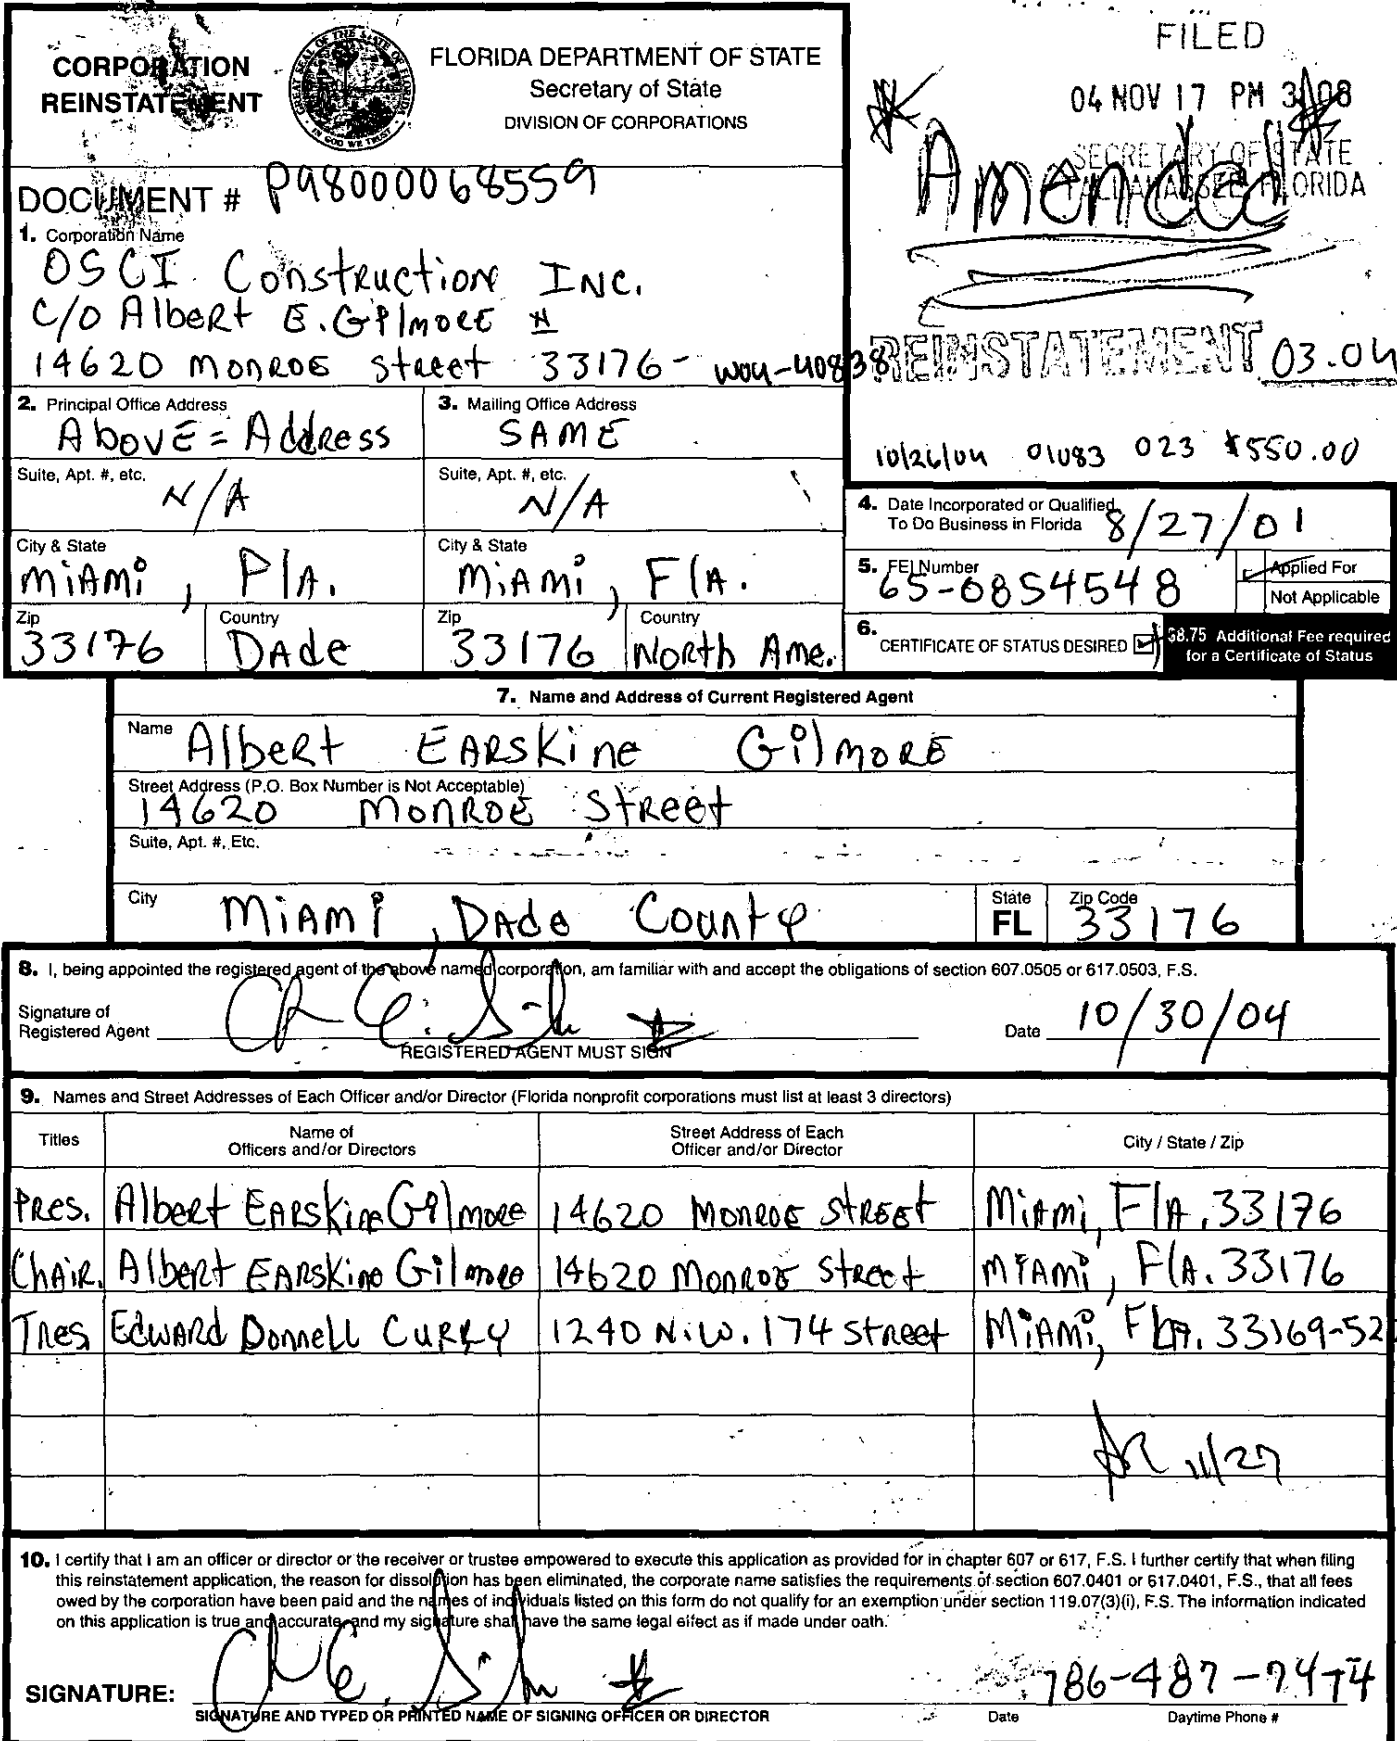 CORPORATION
REINSTATEMENT
FLORIDA DEPARTMENT OF STATE
Secretary of State
DIVISION OF CORPORATIONS
FILED
04 NOV 17 PM 3:08
SECRETARY OF STATE
TALLAHASSEE FLORIDA
Amended
DOCUMENT # P98000068559
1. Corporation Name
OSCI Construction INC.
C/O Albert E. Gilmore II
14620 Monroe Street 33176- W04-40838
REINSTATEMENT 03-04
10/26/04 01083 023 $550.00
2. Principal Office Address
Above = Address
3. Mailing Office Address
SAME
Suite, Apt. #, etc.
N/A
Suite, Apt. #, etc.
N/A
4. Date Incorporated or Qualified
To Do Business in Florida 8/27/01
City & State
Miami, Fla.
City & State
Miami, Fla.
5. FEI Number
65-0854548
Applied For
Not Applicable
Zip
33176
Country
Dade
Zip
33176
Country
North Ame.
6. CERTIFICATE OF STATUS DESIRED
$8.75 Additional Fee required
for a Certificate of Status
7. Name and Address of Current Registered Agent
Name Albert Earskine Gilmore
Street Address (P.O. Box Number is Not Acceptable)
14620 Monroe Street
Suite, Apt. #, Etc.
City Miami, Dade County
State
FL
Zip Code
33176
8. I, being appointed the registered agent of the above named corporation, am familiar with and accept the obligations of section 607.0505 or 617.0503, F.S.
Signature of
Registered Agent
REGISTERED AGENT MUST SIGN
Date 10/30/04
9. Names and Street Addresses of Each Officer and/or Director (Florida nonprofit corporations must list at least 3 directors)
Titles
Name of
Officers and/or Directors
Street Address of Each
Officer and/or Director
City / State / Zip
Pres. Albert Earskine Gilmore 14620 Monroe Street Miami, Fla. 33176
Chair. Albert Earskine Gilmore 14620 Monroe Street Miami, Fla. 33176
Tres Edward Donnell Curry 1240 N.W. 174 Street Miami, Fla. 33169-52
11/27
10. I certify that I am an officer or director or the receiver or trustee empowered to execute this application as provided for in chapter 607 or 617, F.S. I further certify that when filing
this reinstatement application, the reason for dissolution has been eliminated, the corporate name satisfies the requirements of section 607.0401 or 617.0401, F.S., that all fees
owed by the corporation have been paid and the names of individuals listed on this form do not qualify for an exemption under section 119.07(3)(i), F.S. The information indicated
on this application is true and accurate, and my signature shall have the same legal effect as if made under oath.
SIGNATURE:
786-487-7474
SIGNATURE AND TYPED OR PRINTED NAME OF SIGNING OFFICER OR DIRECTOR
Date
Daytime Phone #